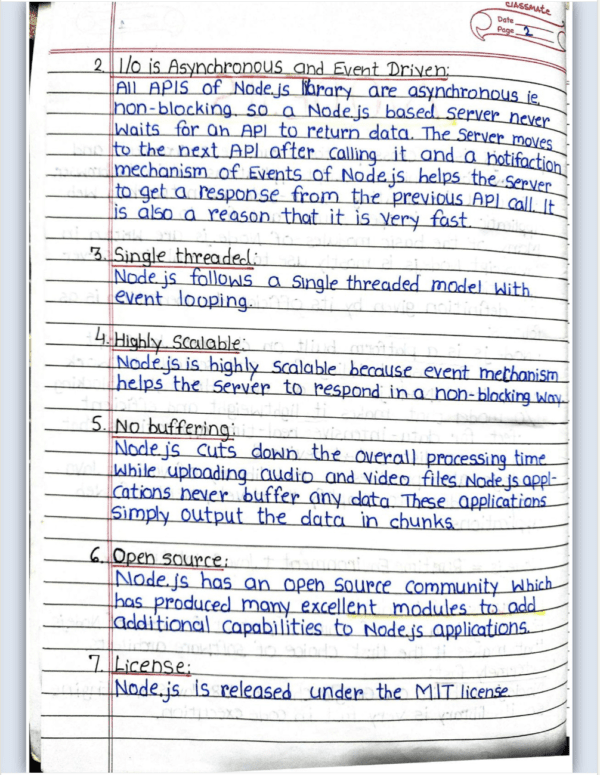 classmate
Date
Page 2
2. I/O is Asynchronous and Event Driven:
All APIS of Node.js library are asynchronous ie.
non-blocking. so a Node.js based server never
waits for an API to return data. The server moves
to the next API after calling it and a notifaction
mechanism of Events of Node.js helps the server
to get a response from the previous API call. It
is also a reason that it is very fast.
3. Single threaded:
Node.js follows a single threaded model with
event looping.
4. Highly Scalable:
Node.js is highly scalable because event mechanism
helps the server to respond in a non-blocking way.
5. No buffering:
Node.js cuts down the overall processing time
while uploading audio and video files. Node.js appl-
cations never buffer any data. These applications
simply output the data in chunks.
6. Open source:
Node.js has an open source community which
has produced many excellent modules to add
additional capabilities to Node.js applications.
7. License:
Node.js is released under the MIT license